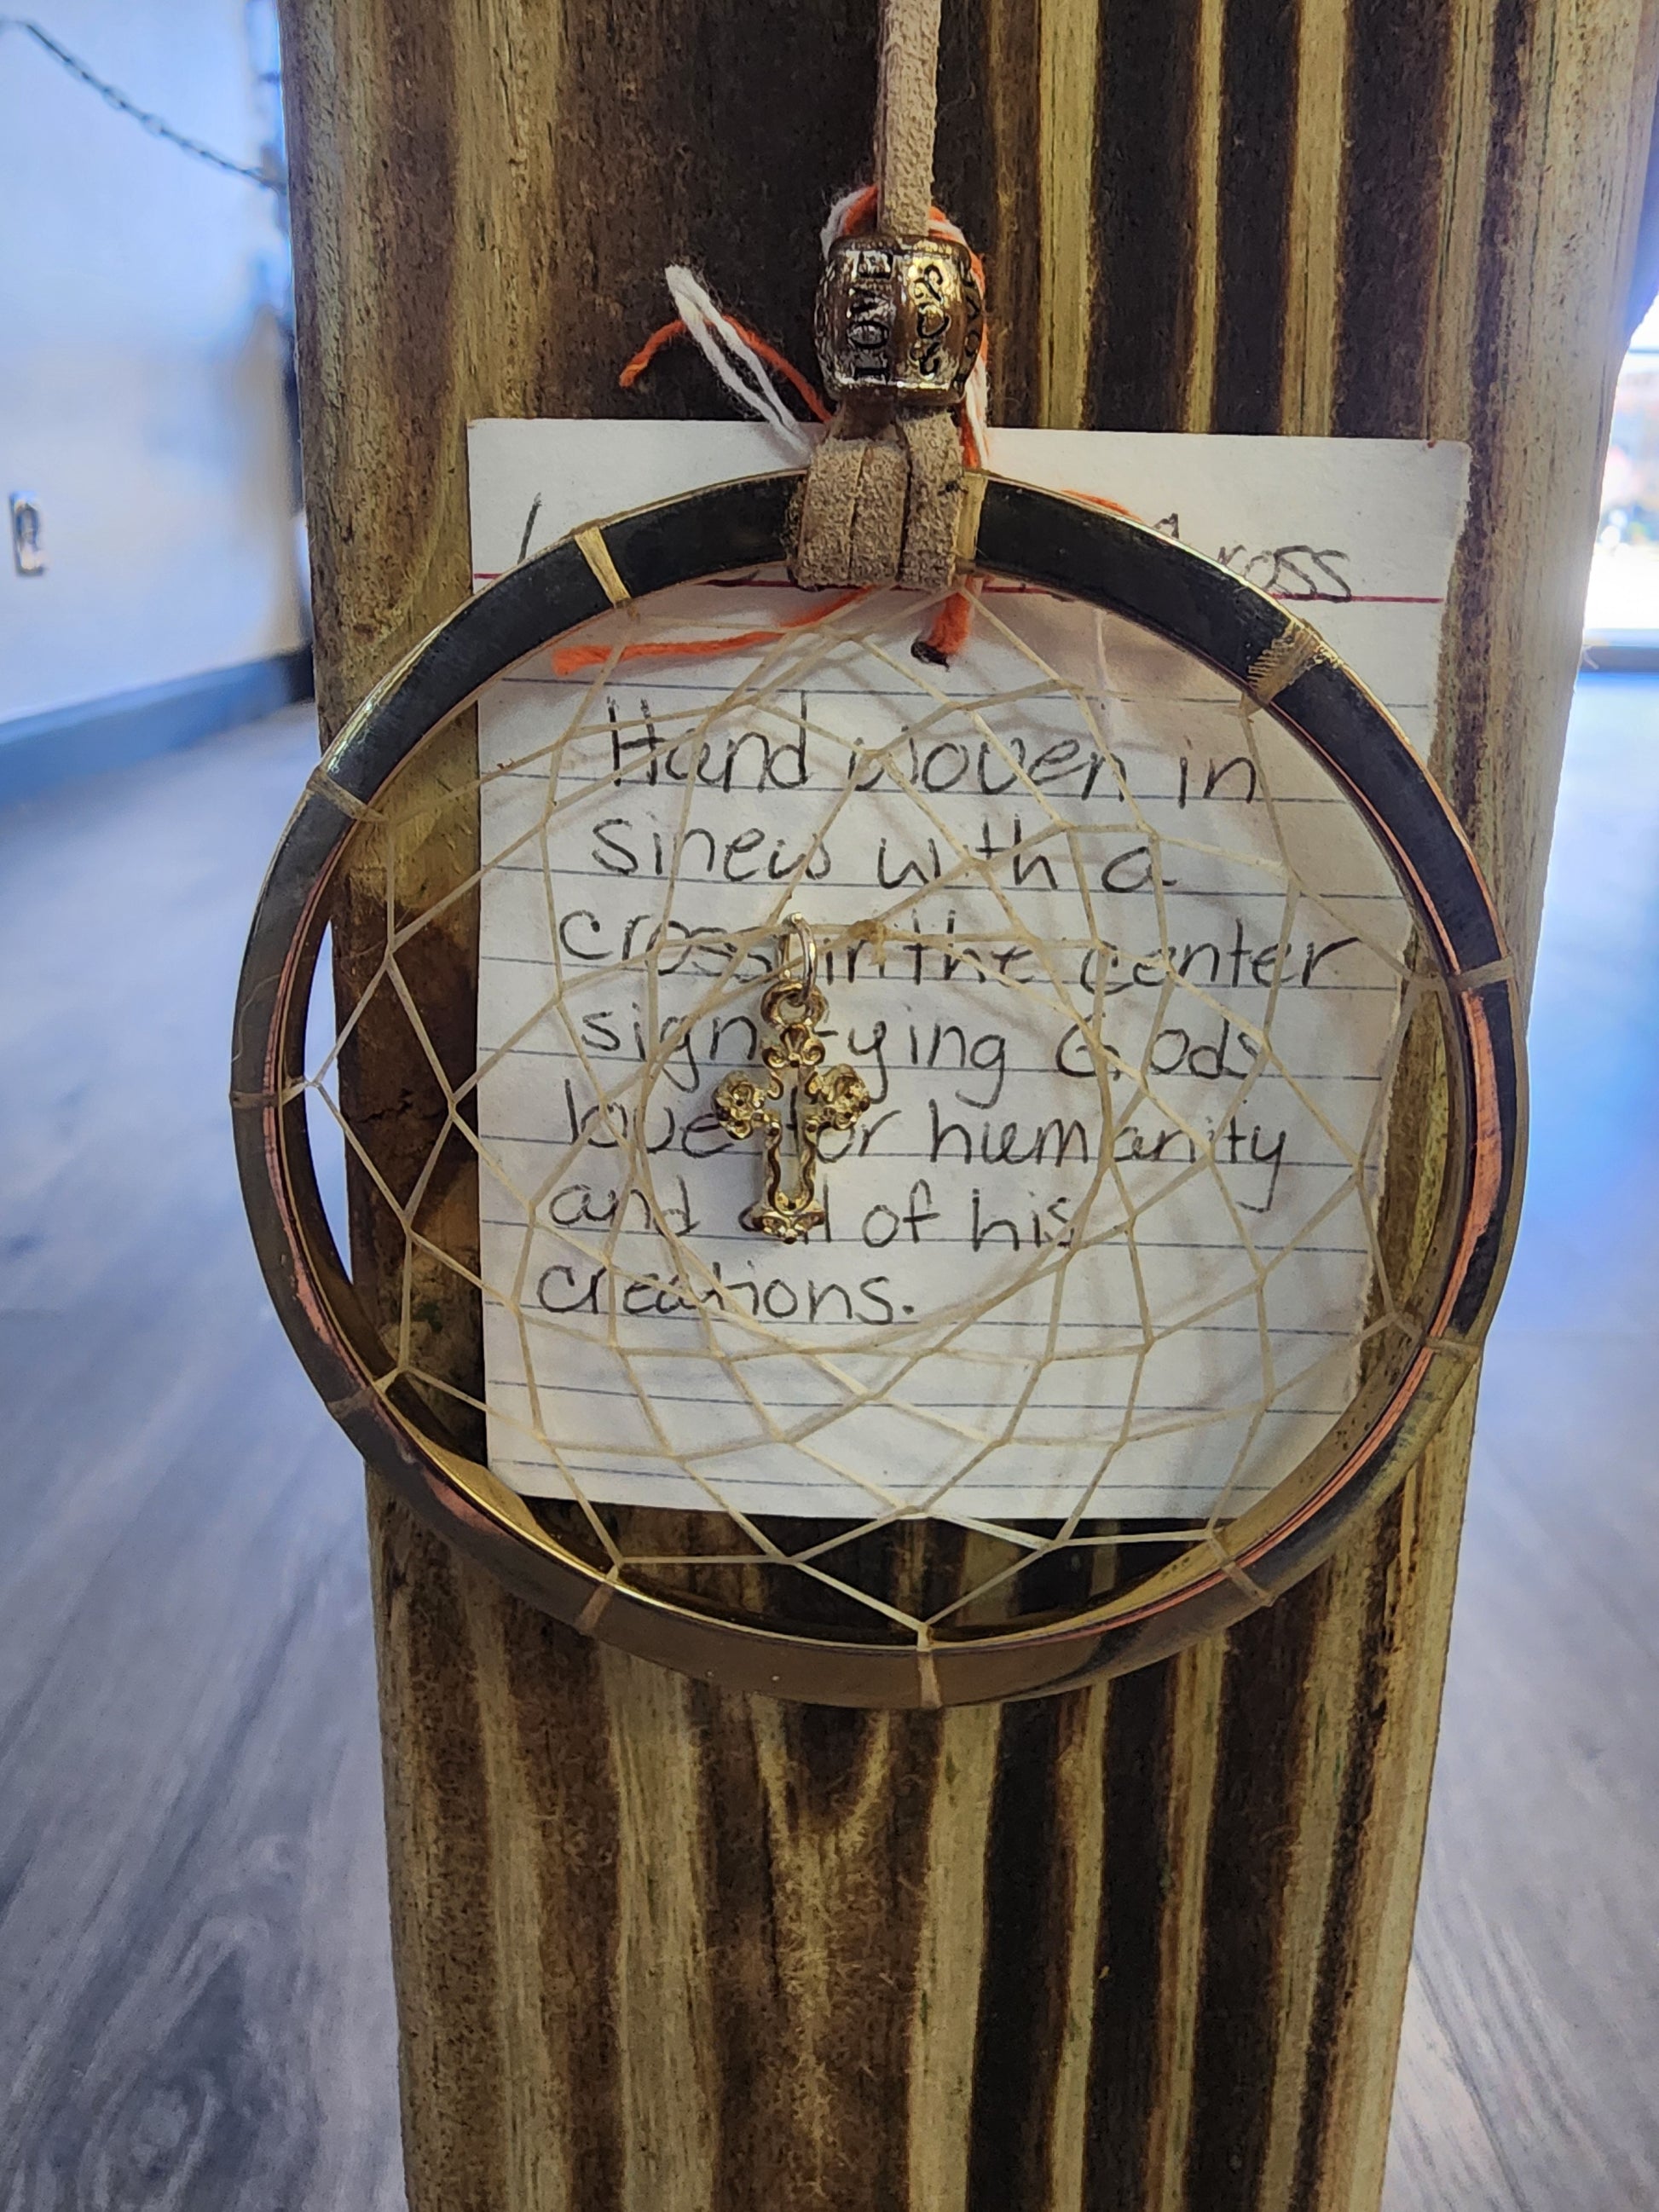 LOVE
Hand woven in
sinew with a
cross in the center
signifying Gods
love for humanity
and all of his
creations.